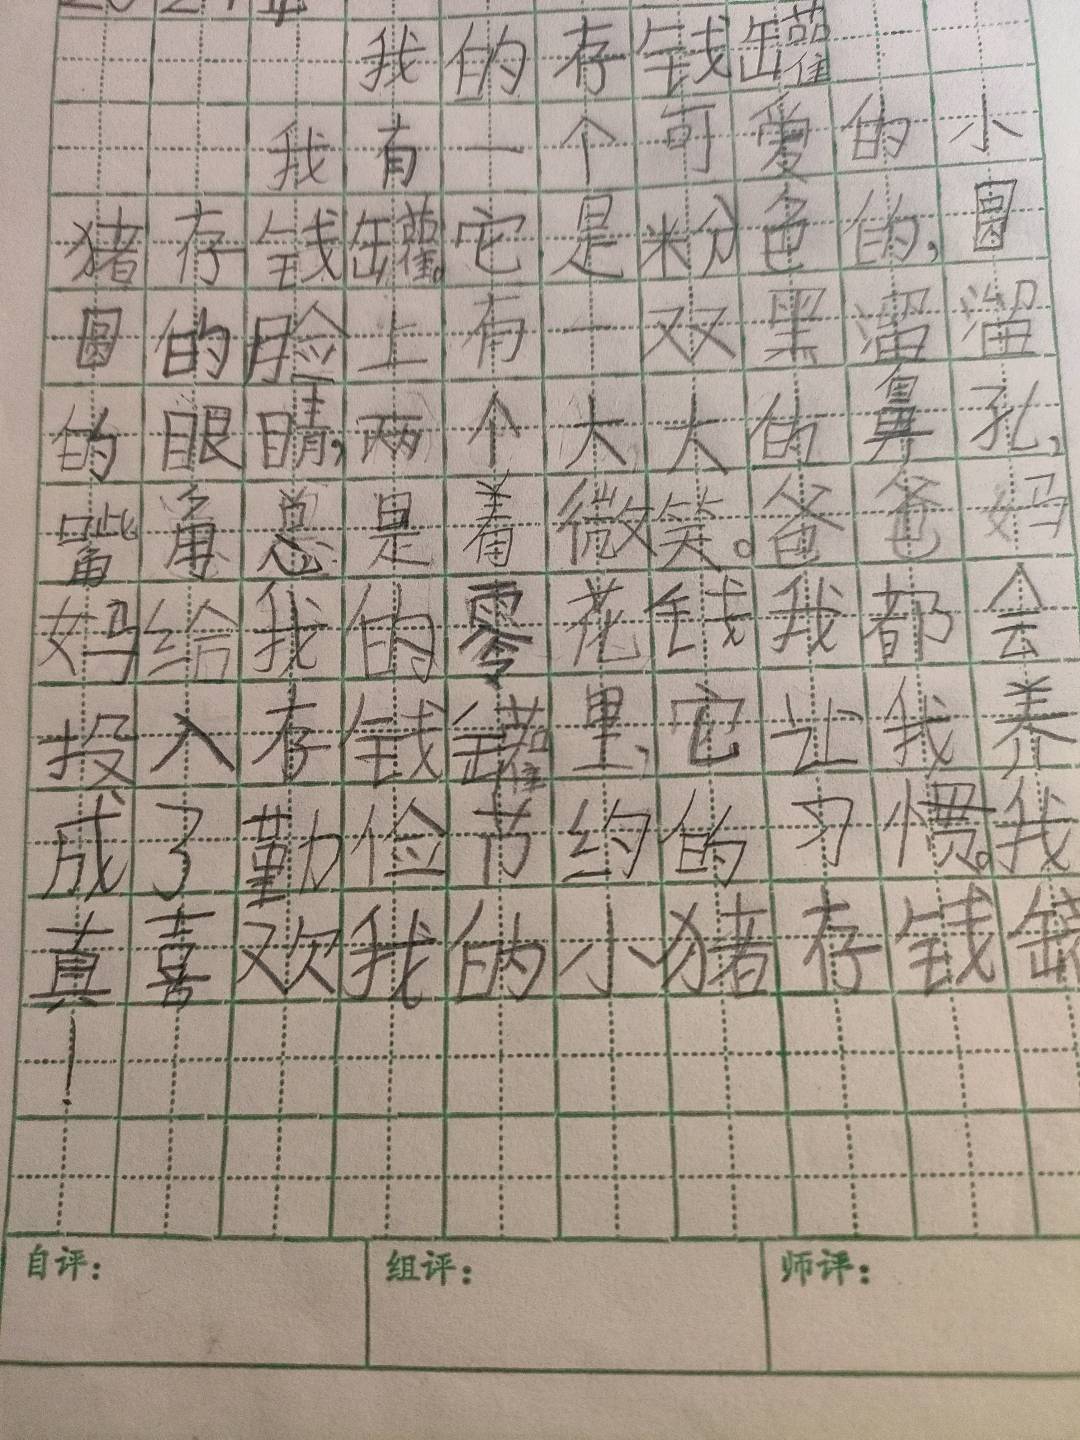 我的存钱罐
我有一个可爱的小
猪存钱罐。它是粉色的,圆
圆的脸上有一双黑溜溜
的眼睛,两个大大的鼻孔,
嘴角总是着微笑。爸爸妈
妈给我的零花钱我都会
投入存钱罐里,它让我养
成了勤俭节约的习惯。我
真喜欢我的小猪存钱罐
!
自评: 组评: 师评: